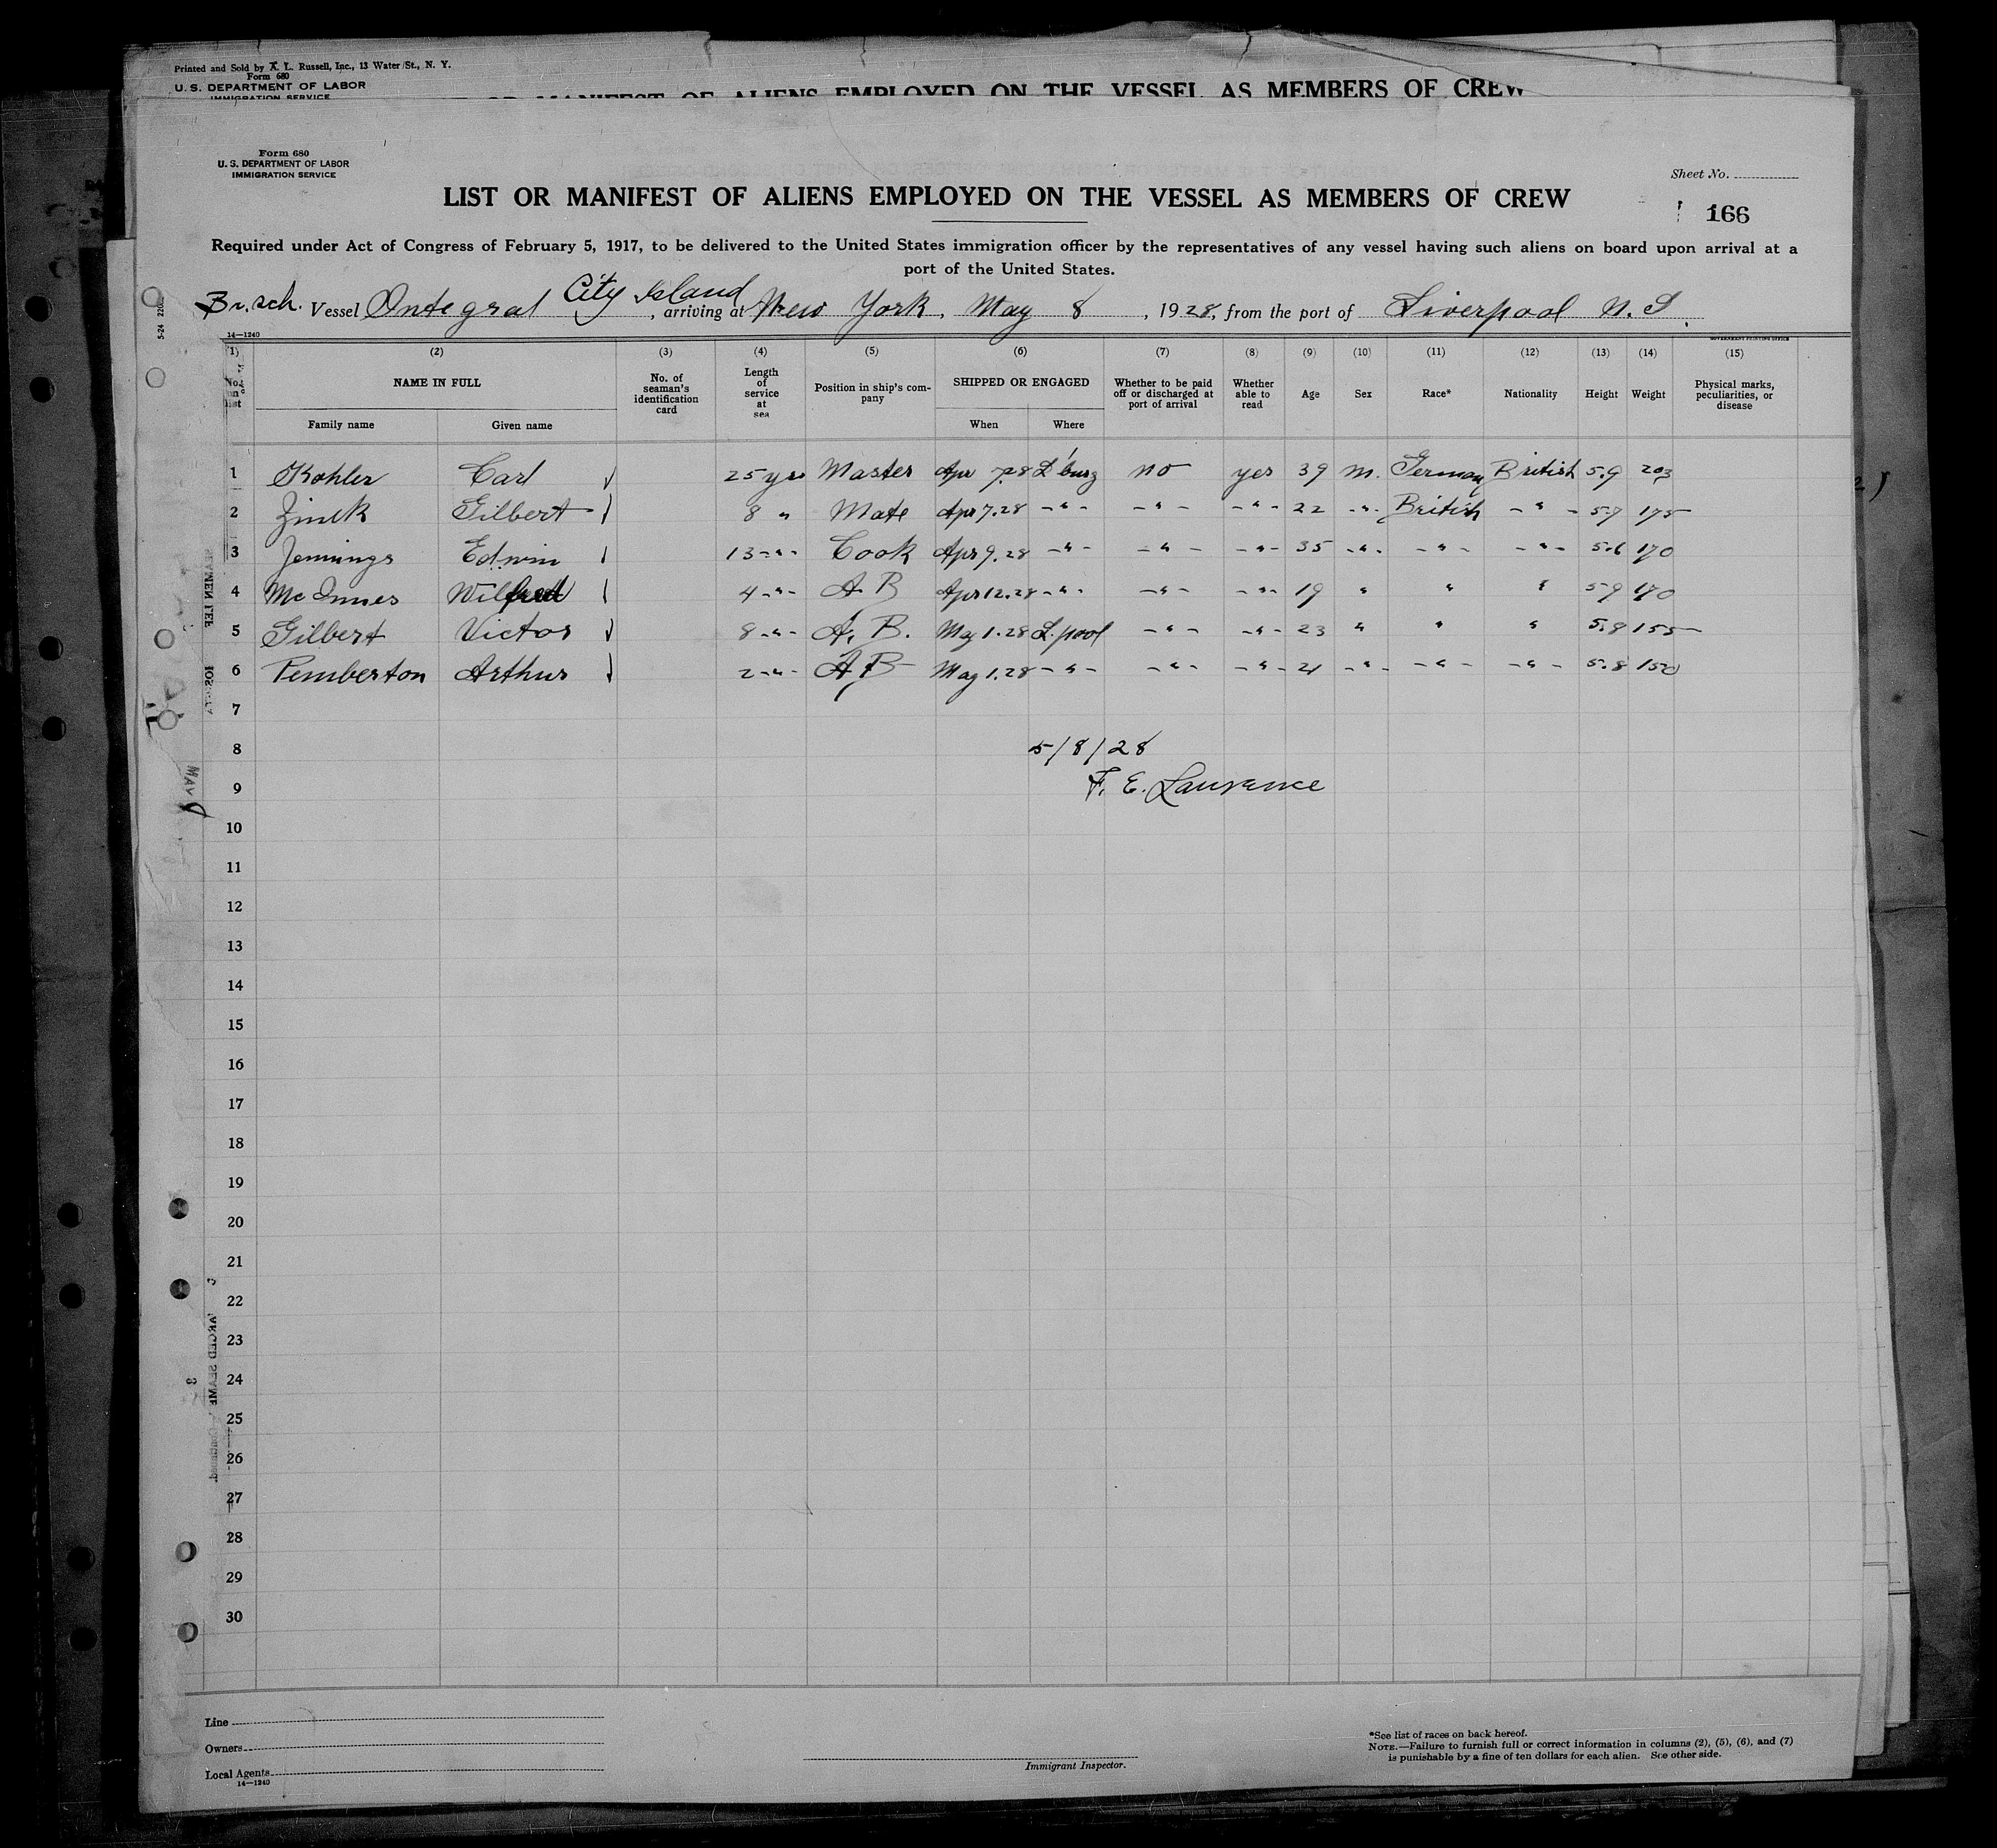 Printed and Sold by A. L. Russell, Inc., 13 Water St., N. Y.
Form 680
U. S. DEPARTMENT OF LABOR
IMMIGRATION SERVICE
OR MANIFEST OF ALIENS EMPLOYED ON THE VESSEL AS MEMBERS OF CREW
Form 680
U. S. DEPARTMENT OF LABOR
IMMIGRATION SERVICE
Sheet No.
LIST OR MANIFEST OF ALIENS EMPLOYED ON THE VESSEL AS MEMBERS OF CREW
166
Required under Act of Congress of February 5, 1917, to be delivered to the United States immigration officer by the representatives of any vessel having such aliens on board upon arrival at a
port of the United States.
Br. sch. Vessel Integral City Island, arriving at New York, May 8, 1928, from the port of Liverpool N. S.
14—1240 GOVERNMENT PRINTING OFFICE
(1) (2) (3) (4) (5) (6) (7) (8) (9) (10) (11) (12) (13) (14) (15)
No. on list NAME IN FULL Family name Given name No. of seaman's identification card Length of service at sea Position in ship's company SHIPPED OR ENGAGED When Where Whether to be paid off or discharged at port of arrival Whether able to read Age Sex Race* Nationality Height Weight Physical marks, peculiarities, or disease
1 Kohler Carl √ 25 yrs Master Apr 7.28 L'burg no yes 39 m. German British 5.9 203
2 Zinck Gilbert √ 8 " Mate Apr 7.28 -"- -"- -"- 22 -"- British -"- 5.7 175
3 Jennings Edwin √ 13 -"- Cook Apr 9.28 -"- -"- -"- 35 -"- -"- -"- 5.6 170
4 McInnes Wilfred √ 4 -"- A. B Apr 12.28 -"- -"- -"- 19 " " " 5 9 170
5 Gilbert Victor √ 8 -"- A. B. May 1.28 L.pool -"- -"- 23 " " " 5.8 155
6 Pemberton Arthur √ 2 -"- A B May 1.28 -"- -"- -"- 21 -"- -"- -"- 5.8 150
7
8 5/8/28
9 F. E. Laurence
10
11
12
13
14
15
16
17
18
19
20
21
22
23
24
25
26
27
28
29
30
Line
Owners
Local Agents
14—1240
Immigrant Inspector.
*See list of races on back hereof.
NOTE.—Failure to furnish full or correct information in columns (2), (5), (6), and (7)
is punishable by a fine of ten dollars for each alien. See other side.